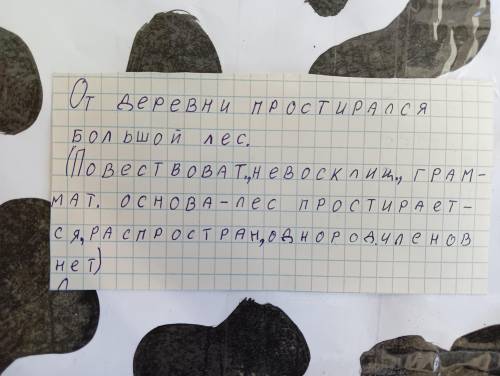 От деревни простирался
большой лес.
(Повествоват., невосклиц., грам-
мат. основа-лес простирает-
ся, распростран, однород.членов
нет)